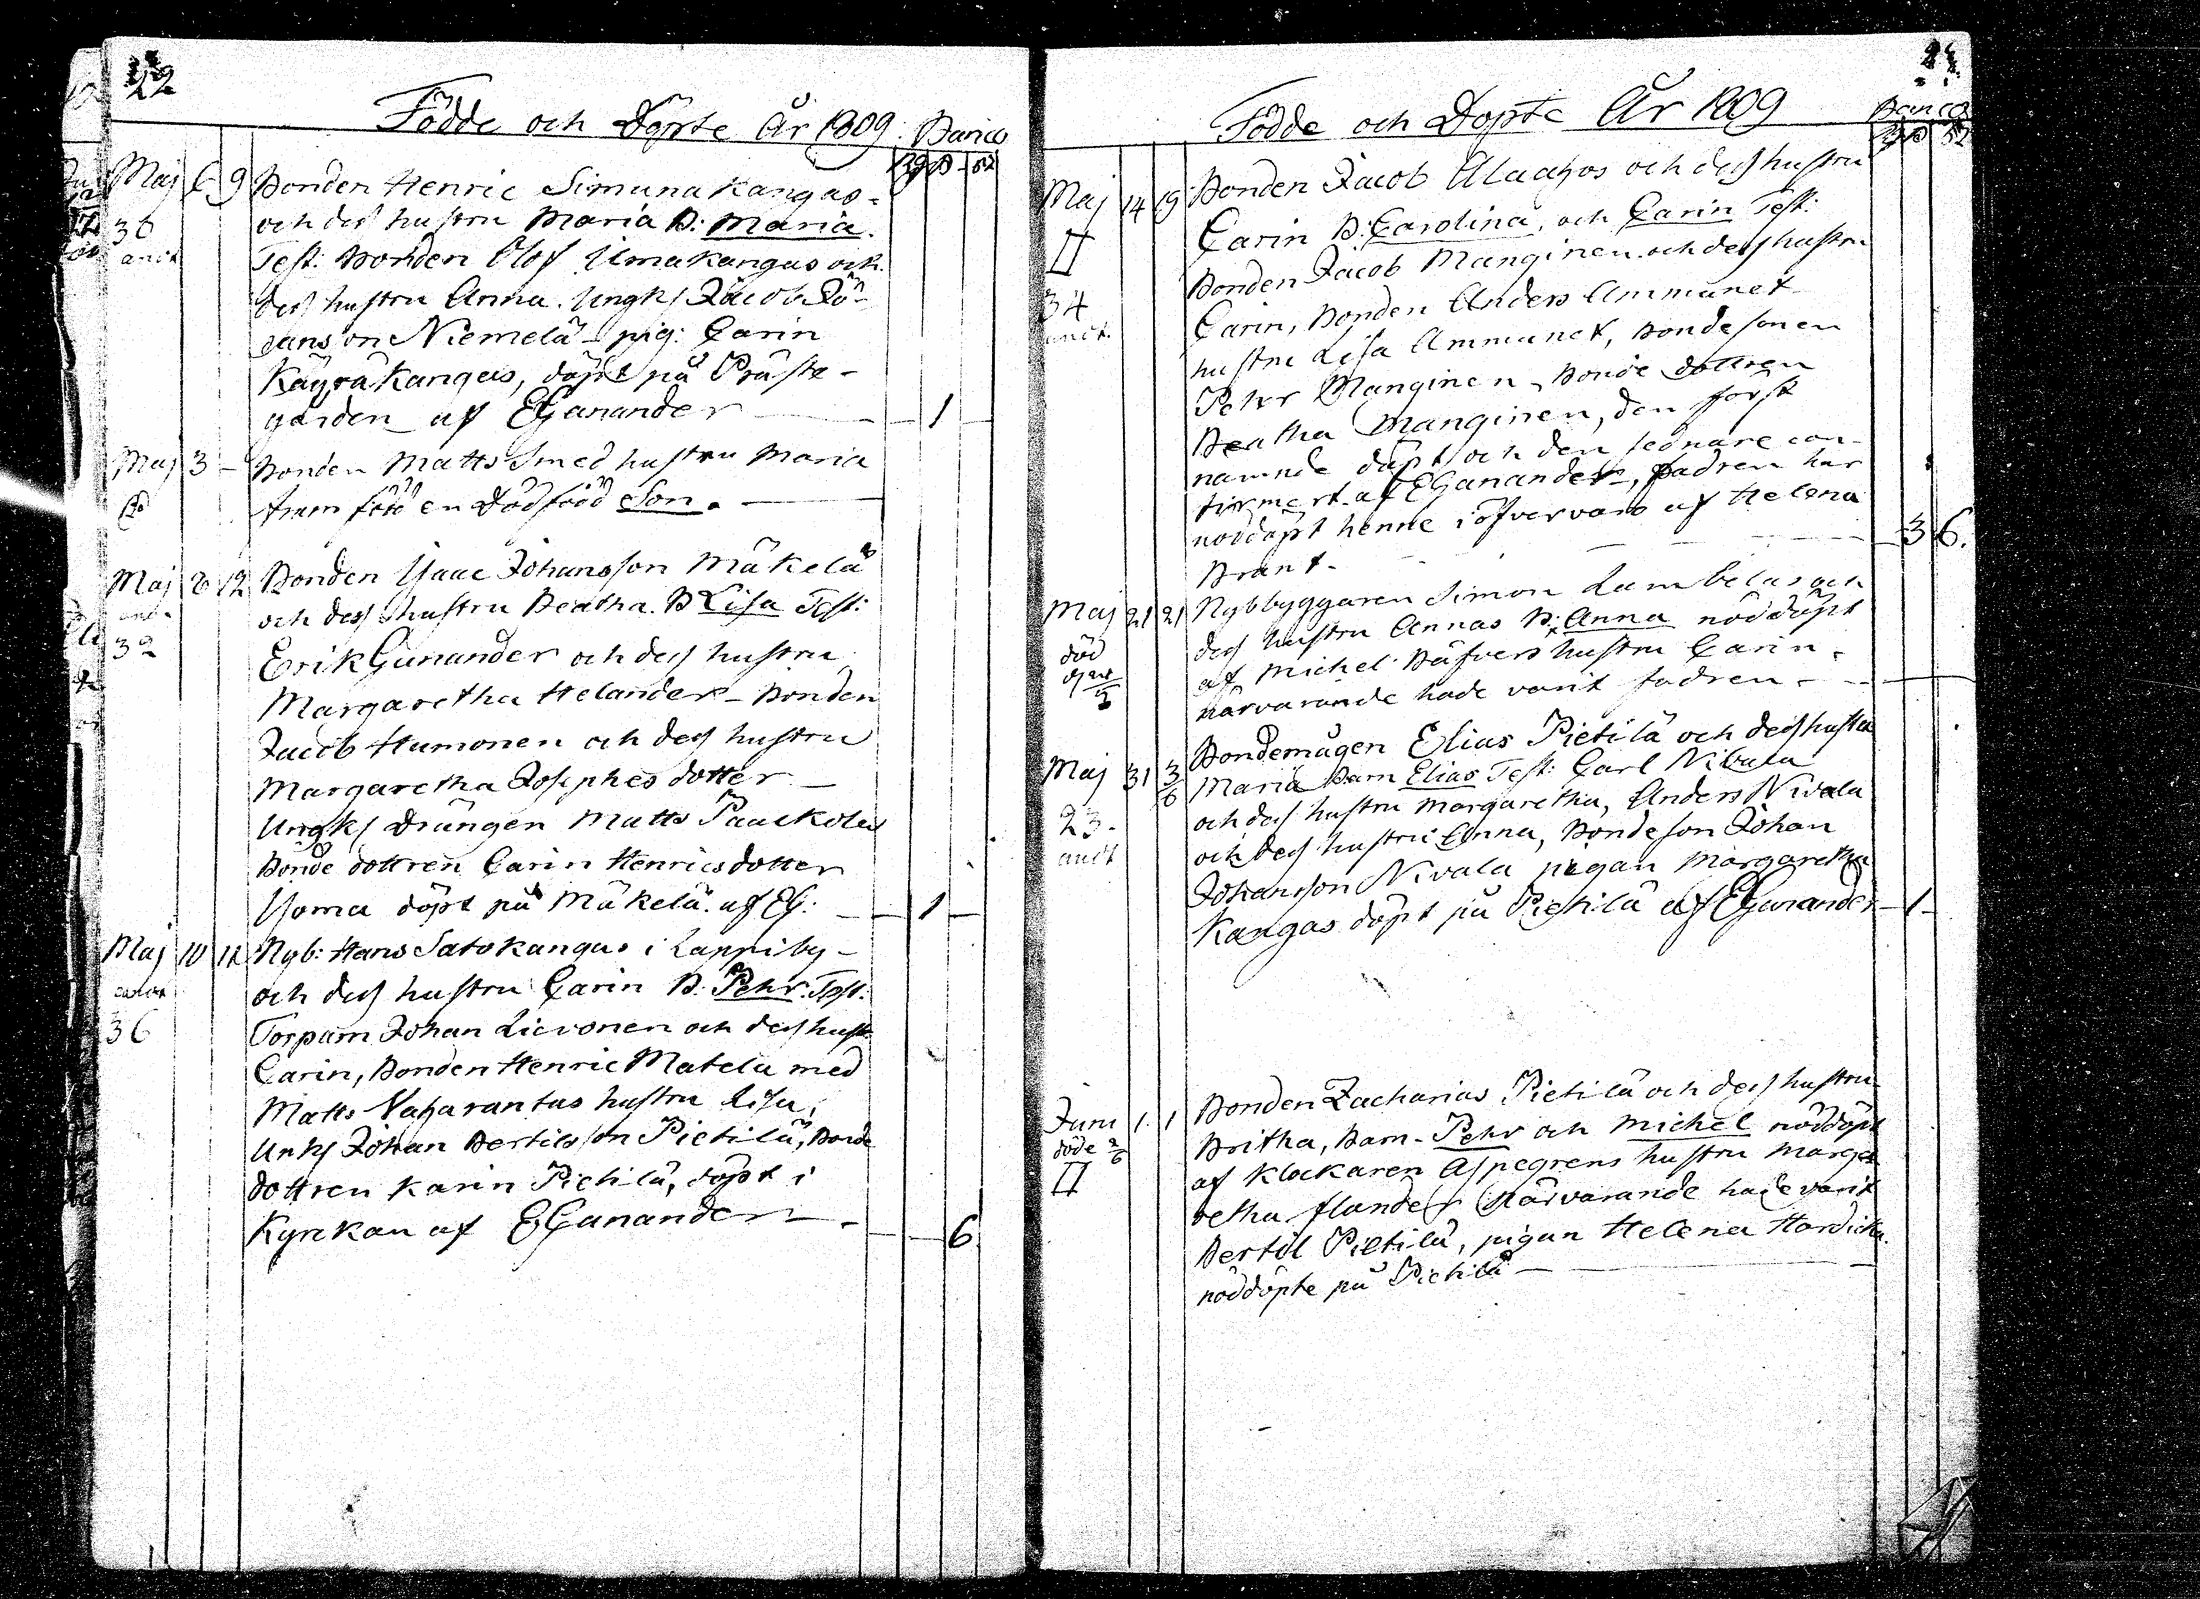 22
Födde och Döpte År 1809. Banco
Maj 6 9 Bonden Henric Simuna Kangas
36 och dess hustru Maria B: Maria.
Test: Bonden Olof Simakangas och
dess hustru Anna. Ungk: Jacob Jö-
ransson Niemelä pig: Carin
Käyräkangas, döpt på Präste-
gården af EGanander 1
Maj 3 - Bonden Matts Smed hustru Maria
fram föd en Dödföd Son.
Maj 8 12 Bonden Isaac Johansson Mäkelä
och dess hustru Beatha. B Lisa Test:
32 Erik Ganander och dess hustru
Margaretha Helander - Bonden
Jacob Humonen och dess hustru
Margaretha Josephes dotter
Ungk: Drängen Matts
Bonde dottren Carin Henricsdotter
döpt på Mäkelä. af EG: 1
Maj 10 12 Nyb: Hans Satokangas i Lappi by
och dess hustru Carin B. Pehr. Test:
36 Torpam Johan Lievonen och dess hust
Carin, Bonden Henric Matela med
Matts Vaharantas hustru Lisa,
Unk: Johan Bertilsson Pietilä, Bonde
dottren Karin Pietilä, döpt i
Kyrckan af EGanander 6
Födde och Döpte År 1809 Banco
Maj 14 19 Bonden Jacob Alaahos och dess hustru
Carin B: Carolina, och Carin Test:
Bonden Jacob Manginen och dess hustru
34 Carin, Bonden Anders Ammunet
hustru Lisa Ammunet, Bondesonen
Pehr Manginen Bonde dottren
Beatha Manginen, den först
namnde döpt och den sednare con-
firmert af EGanander, fadren har
nöddöpt henne i öfvervaro af Helena
Brant. 3 6.
Maj 21 21 Nybbyggaren Simon Lambela och
död dess hustru Annas B: Anna nöddöpt
af Michel Bäfvers hustru Carin
närvarande hade varit fadren
Bondemågen Elias Pietilä och dess hustru
Maj 31 3/6 Maria Barn Elias Test: Carl Nivala
och dess hustru Margaretha, Anders Nivala
23. och dess hustru Anna, Bondeson Johan
Johansson Nivala pigan Margaretha
Kangas döpt på Pietilä af EGanander 1
Bonden Zacharias Pietilä och dess hustru
Juni 1. 1 Britha, Barn Pehr och Michel nöddöpt
döde 2/6 af Klockaren Aspegrens hustru Marga
retha flander närvarande hade varit
Bertil Pietilä, pigan Helena
nöddöpte på Pietilä